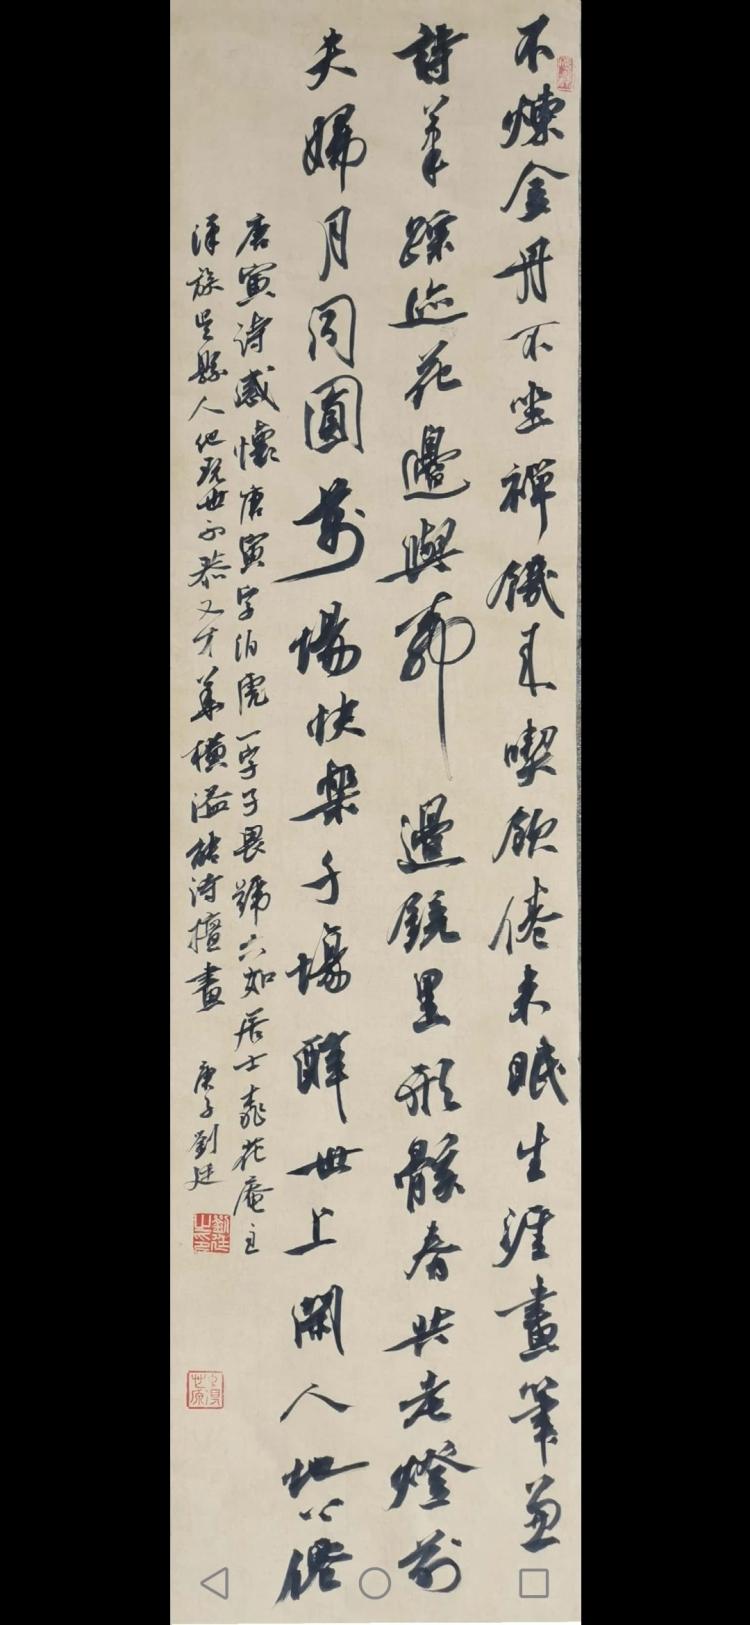 不煉金丹不坐禪饑来喫飯倦来眠生涯畫筆兼
詩筆踪迹花邊與柳邊鏡里形骸春共老燈前
夫婦月同圓萬場快樂千場醉世上閑人地上仙
唐寅诗感懷唐寅字伯虎一字子畏號六如居士桃花庵主
漢族吴縣人他玩世不恭又才華橫溢能诗擅畫
庚子劉廷